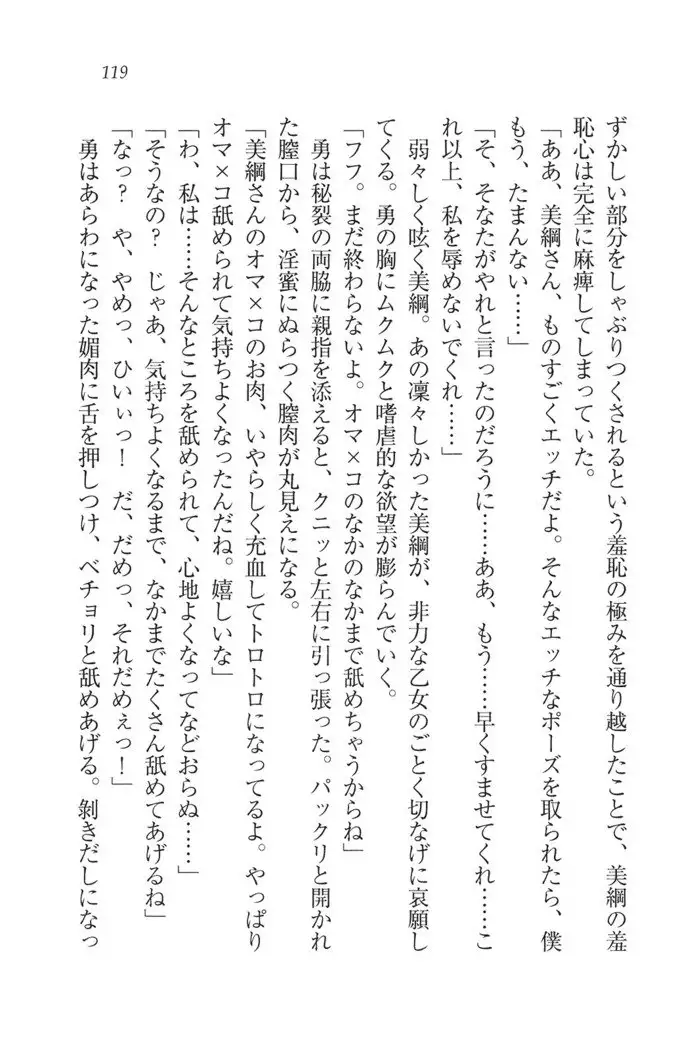 119
ずかしい部分をしゃぶりつくされるという羞恥の極みを通り越したことで、美綱の羞
恥心は完全に麻痺してしまっていた。
「ああ、美綱さん、ものすごくエッチだよ。そんなエッチなポーズを取られたら、僕
もう、たまんない……」
「そ、そなたがやれと言ったのだろうに……ああ、もう……早くすませてくれ……こ
れ以上、私を辱めないでくれ……」
弱々しく呟く美綱。あの凛々しかった美綱が、非力な乙女のごとく切なげに哀願し
てくる。勇の胸にムクムクと嗜虐的な欲望が膨らんでいく。
「フフ。まだ終わらないよ。オマ×コのなかのなかまで舐めちゃうからね」
勇は秘裂の両脇に親指を添えると、クニッと左右に引っ張った。パックリと開かれ
た膣口から、淫蜜にぬらつく膣肉が丸見えになる。
「美綱さんのオマ×コのお肉、いやらしく充血してトロトロになってるよ。やっぱり
オマ×コ舐められて気持ちよくなったんだね。嬉しいな」
「わ、私は……そんなところを舐められて、心地よくなってなどおらぬ……」
「そうなの？　じゃあ、気持ちよくなるまで、なかまでたくさん舐めてあげるね」
「なっ？　や、やめっ、ひいぃっ！　だ、だめっ、それだめぇっ！」
勇はあらわになった媚肉に舌を押しつけ、ベチョリと舐めあげる。剝きだしになっ